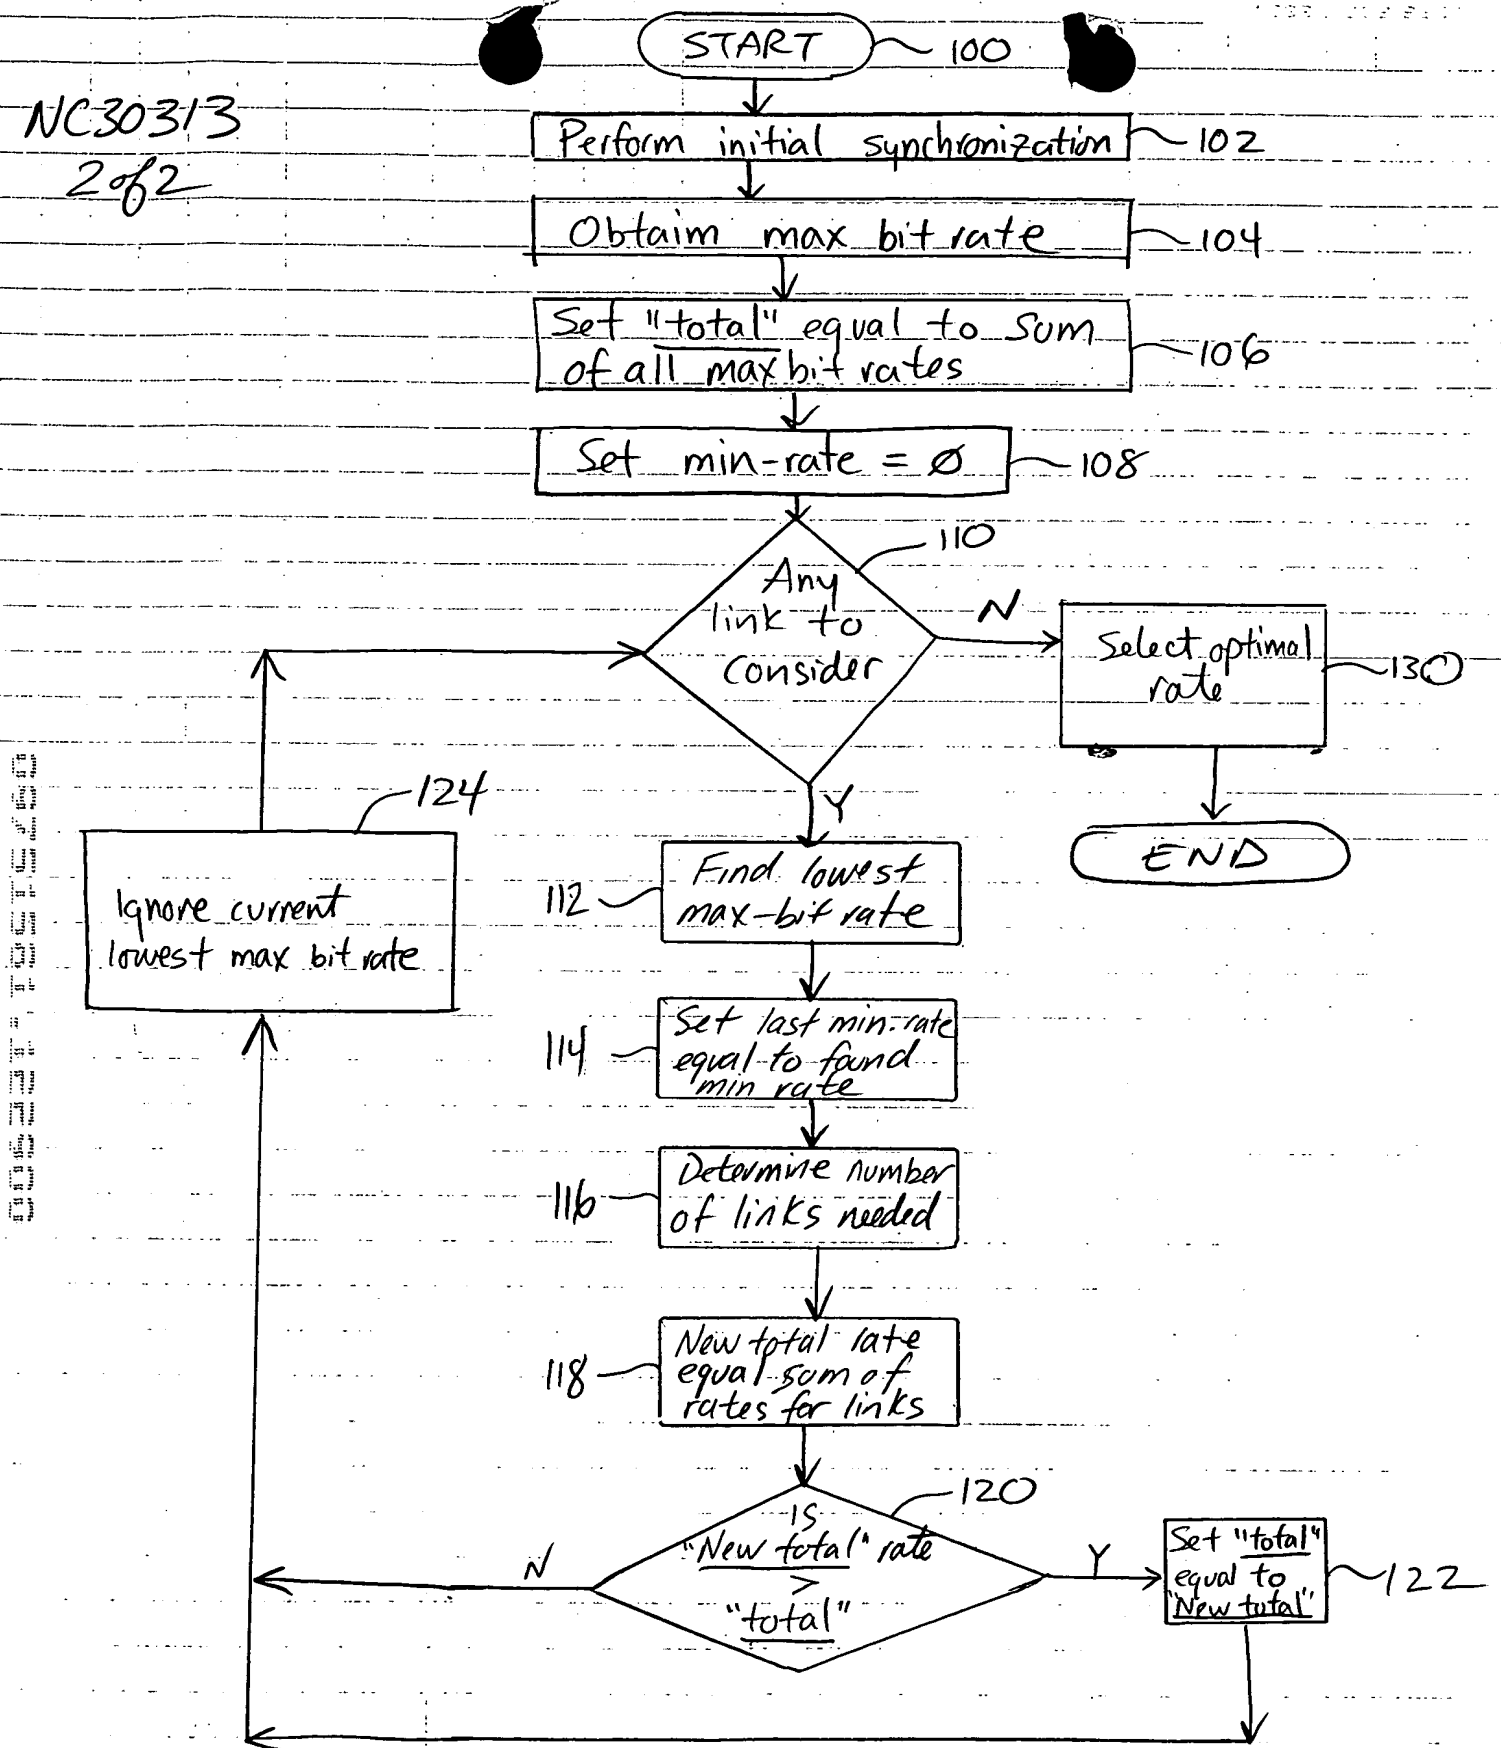 START
100
NC30313
2 of 2
Perform initial synchronization
102
Obtaim max bit rate
104
Set "total" equal to sum
of all max bit rates
106
Set min-rate = Ø
108
110
Any
link to
consider
N
Select optimal
rate
130
END
Y
124
Ignore current
lowest max bit rate
Find lowest
max-bit rate
112
Set last min-rate
equal to found
min rate
114
Determine number
of links needed
116
New total rate
equal sum of
rates for links
118
120
Is
"New total" rate
>
"total"
N
Y
Set "total"
equal to
"New total"
122